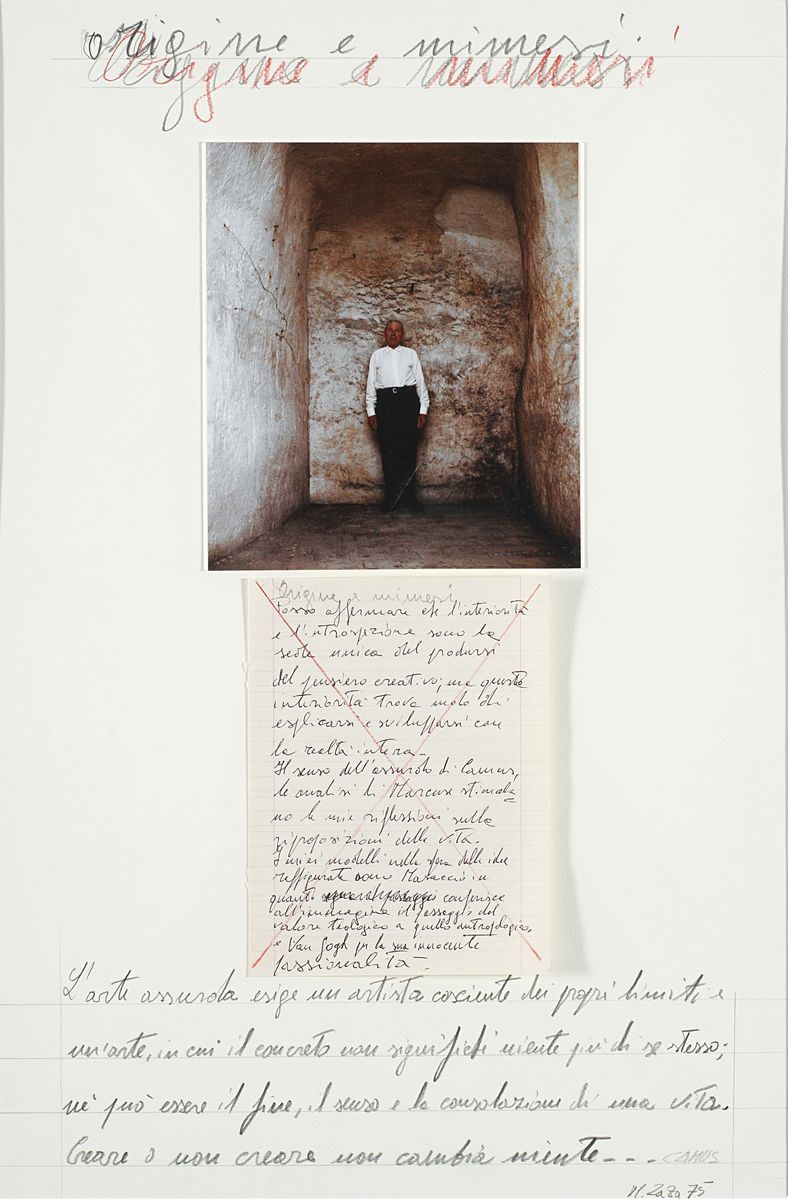 origine e mimesi
Origine e mimesi
Origine e mimesi
Posso affermare che l'interiorità
e l'introspezione sono la
sede unica del prodursi
del pensiero creativo; ma questa
interiorità trova modo di
esplicarsi e svilupparsi con
la realtà intera.
Il senso dell'assurdo di Camus,
le analisi di Marcuse stimola
no le mie riflessioni sulla
riproposizioni della vita.
I miei modelli nella sfera delle idee
raffigurate sono Masaccio in
quanto conferisce
all'immagine il passaggio dal
valore teologico a quello antropologico,
e Van Gogh per la sua innocente
passionalità.
L'arte assurda esige un artista cosciente dei propri limiti e
un'arte, in cui il concreto non significhi niente più di se stesso;
nè può essere il fine, il senso e la consolazione di una vita.
Creare o non creare non cambia niente--- CAMUS
M. ZaZa 75